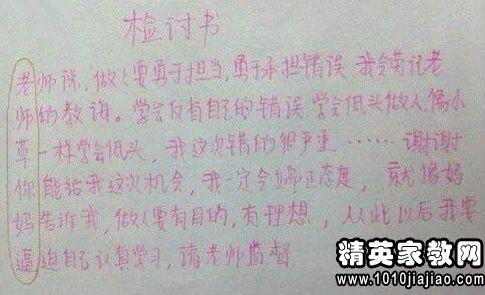 检讨书
老师说，做人要勇于担当，勇于承担错误 我会劳记老
师的教诲。学会反省自己的错误，学会低头做人，像小
草一样学会低头，我这次错的很严重……谢谢
你能给我这次机会，我一定会端正态度，就像妈
妈告诉我，做人要有目的，有理想，从此以后我要
逼迫自己认真学习，请老师监督
精英家教网
www.1010jiajiao.com